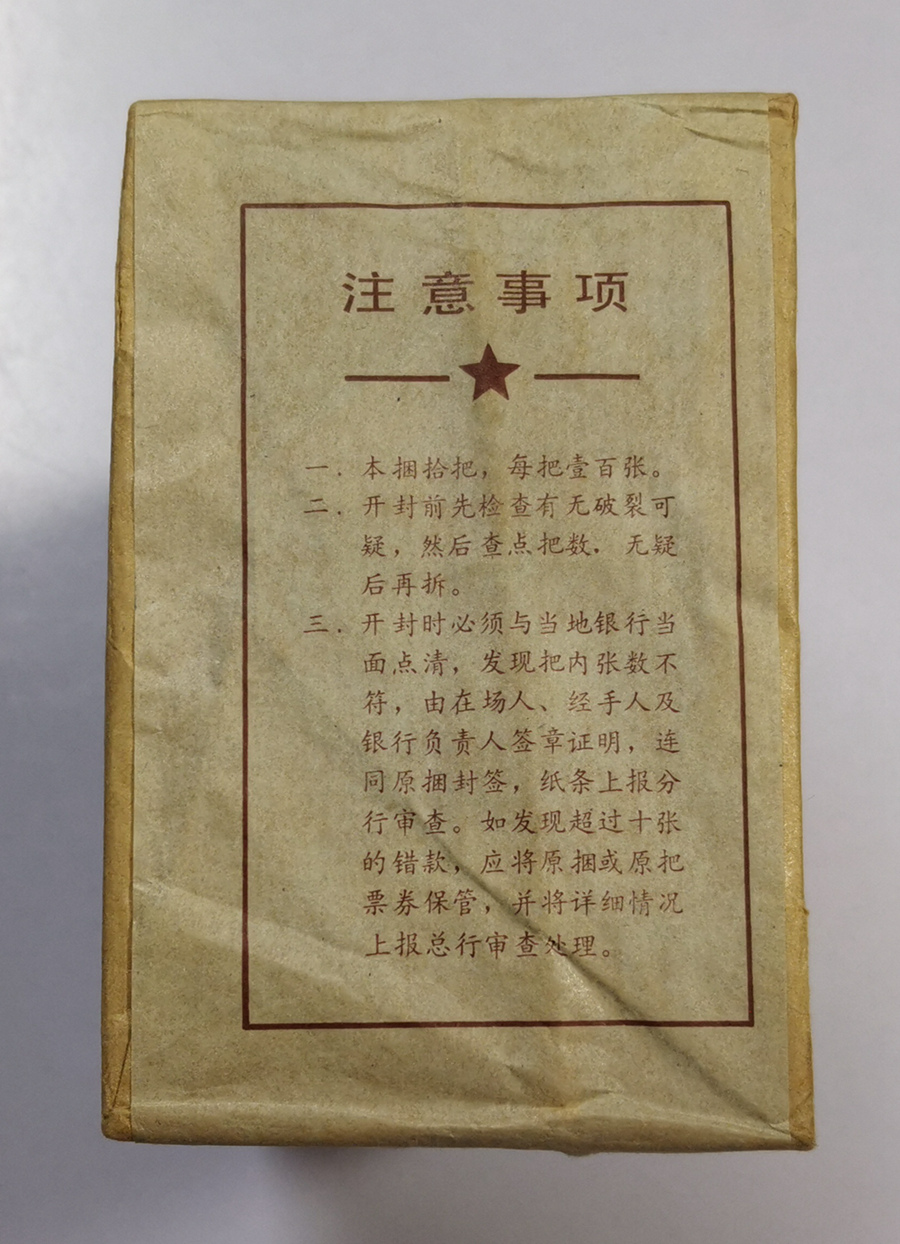 注意事项
一．本捆拾把，每把壹百张。
二．开封前先检查有无破裂可
疑，然后查点把数．无疑
后再拆。
三．开封时必须与当地银行当
面点清，发现把内张数不
符，由在场人、经手人及
银行负责人签章证明，连
同原捆封签，纸条上报分
行审查。如发现超过十张
的错款，应将原捆或原把
票券保管，并将详细情况
上报总行审查处理。